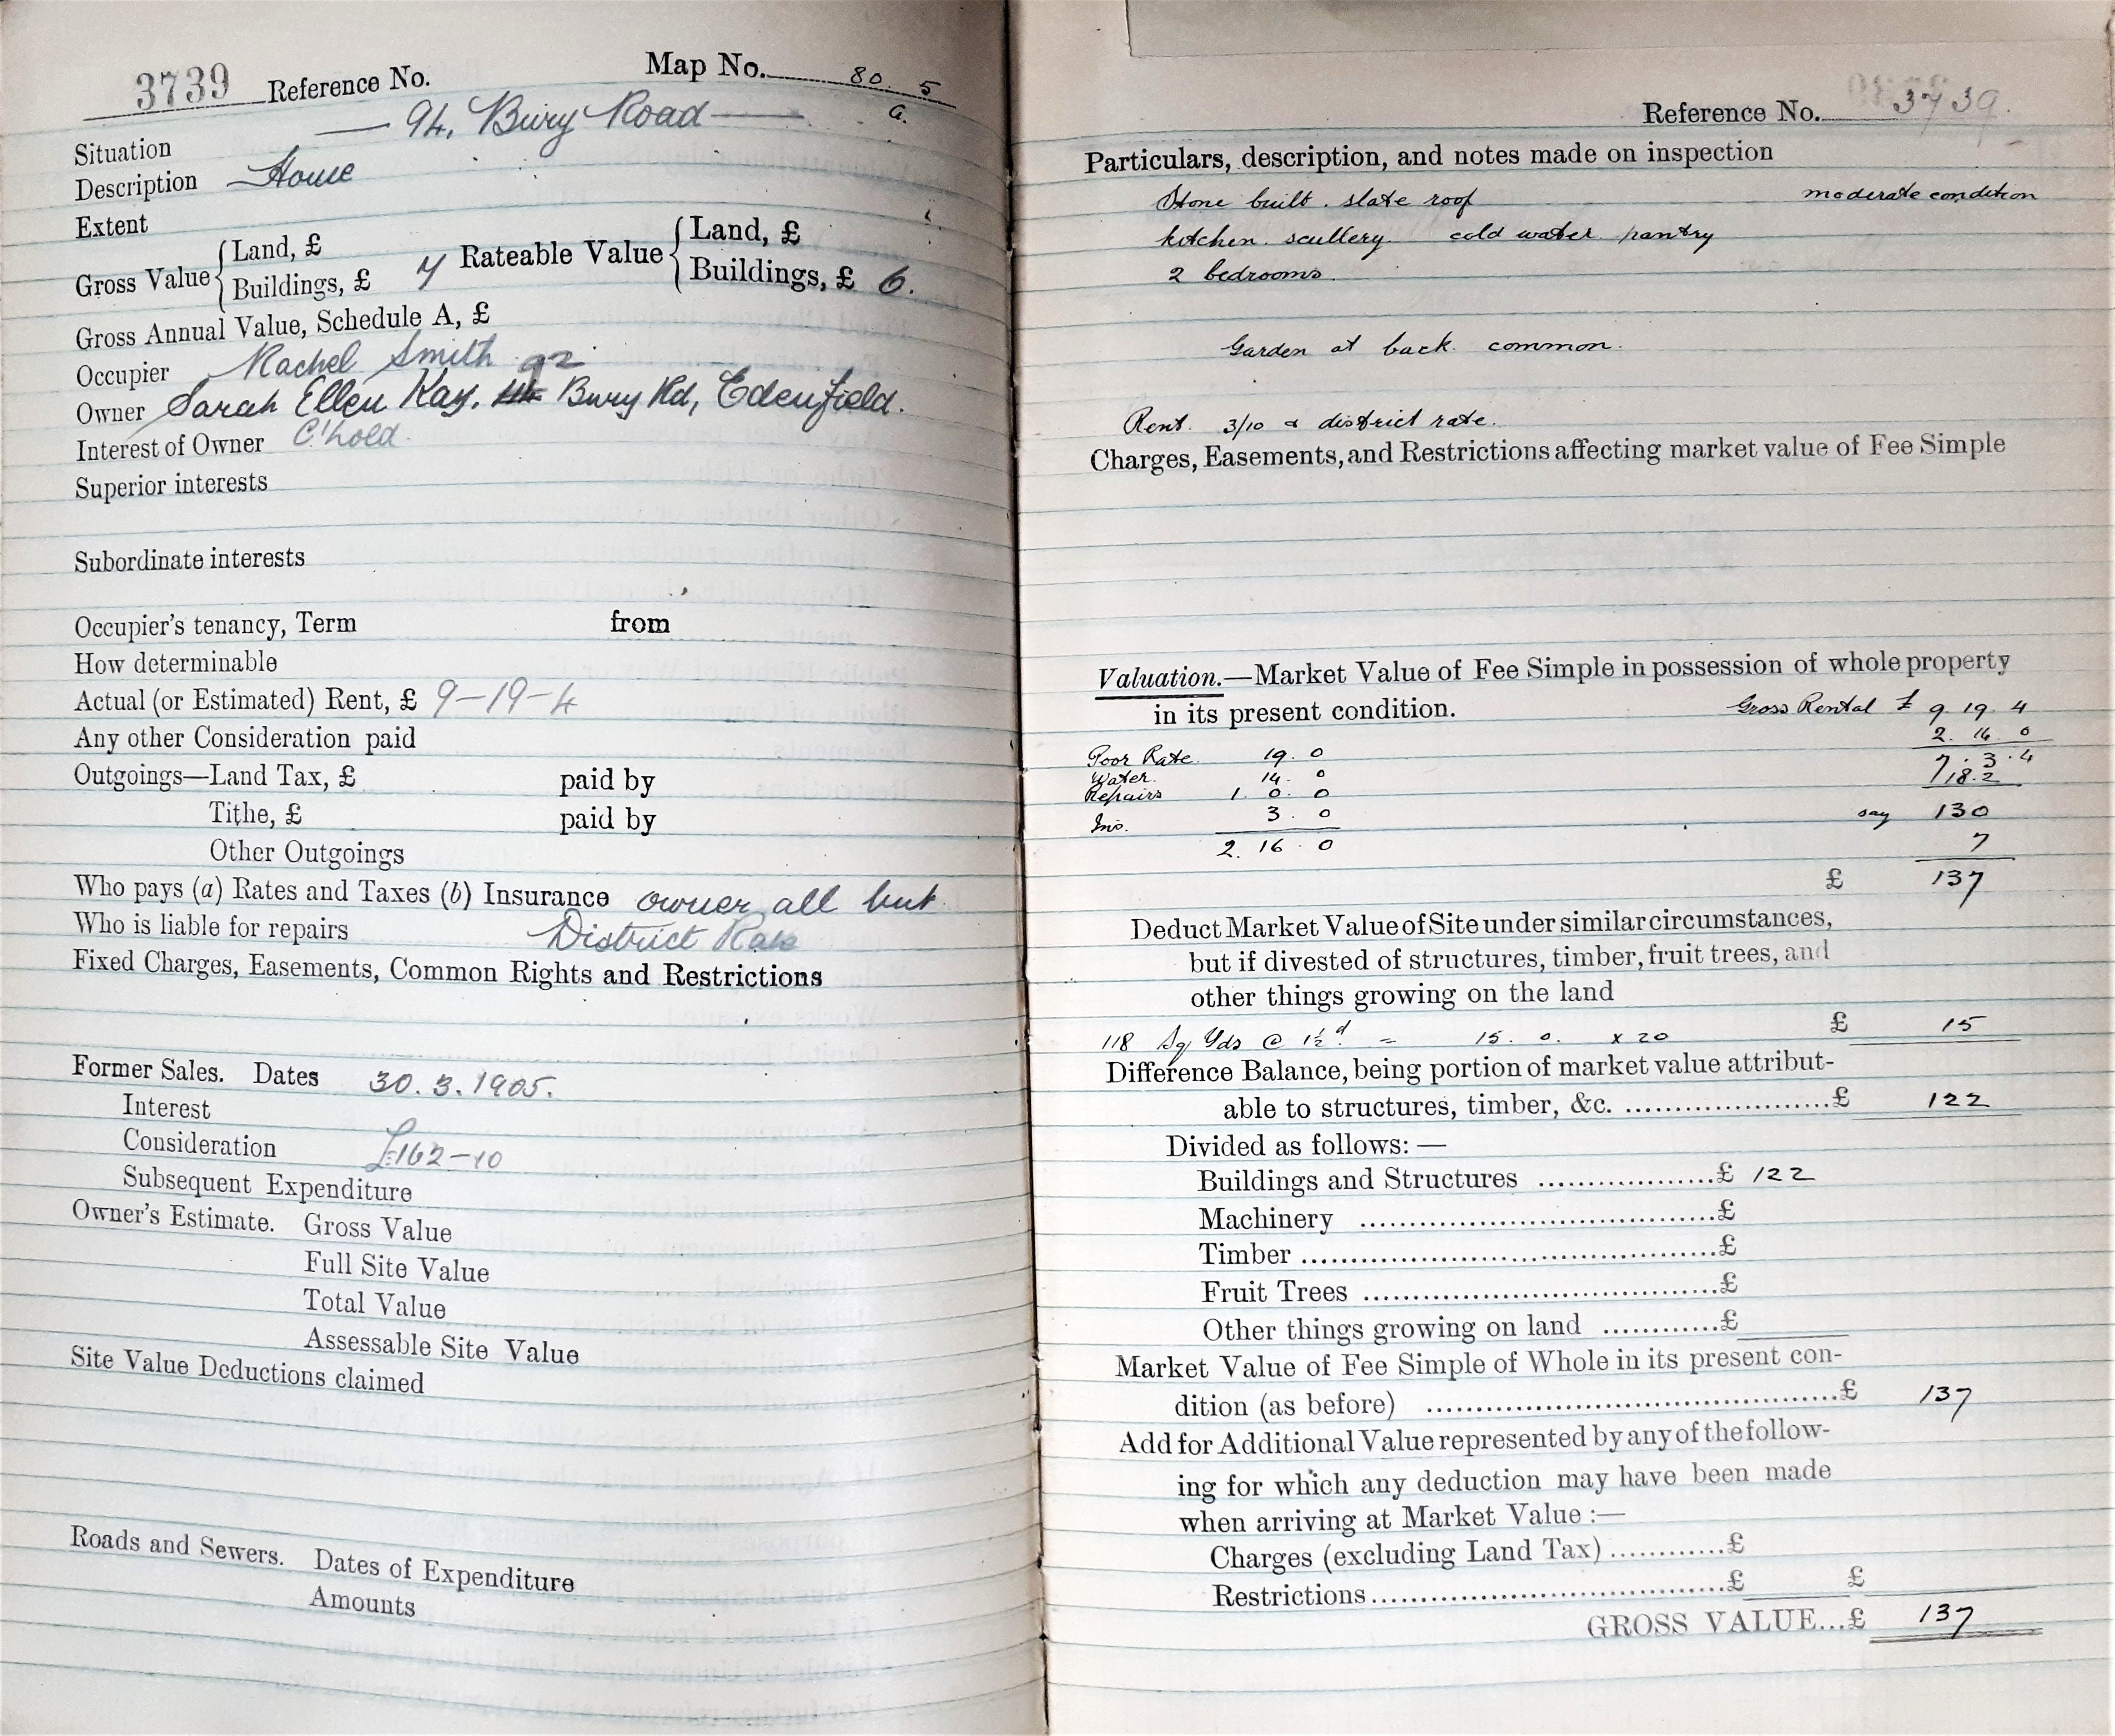 3739 Reference No. Map No. 80. 5
a.
Situation — 94, Bury Road —
Description House
Extent
Gross Value { Land, £
Buildings, £ 7 Rateable Value { Land, £
Buildings, £ 6.
Gross Annual Value, Schedule A, £
Occupier Rachel Smith
Owner Sarah Ellen Kay, 92 Bury Rd, Edenfield.
Interest of Owner C'hold.
Superior interests
Subordinate interests
Occupier's tenancy, Term from
How determinable
Actual (or Estimated) Rent, £ 9-19-4
Any other Consideration paid
Outgoings—Land Tax, £ paid by
Tithe, £ paid by
Other Outgoings
Who pays (a) Rates and Taxes (b) Insurance owner all but
Who is liable for repairs District Rate
Fixed Charges, Easements, Common Rights and Restrictions
Former Sales. Dates 30.3.1905.
Interest
Consideration £162-10
Subsequent Expenditure
Owner's Estimate. Gross Value
Full Site Value
Total Value
Assessable Site Value
Site Value Deductions claimed
Roads and Sewers. Dates of Expenditure
Amounts
Reference No. 3739.
Particulars, description, and notes made on inspection
Stone built. slate roof moderate condition
kitchen. scullery. cold water pantry
2 bedrooms.
Garden at back common.
Rent. 3/10 & district rate.
Charges, Easements, and Restrictions affecting market value of Fee Simple
Valuation.—Market Value of Fee Simple in possession of whole property
in its present condition. Gross Rental £ 9. 19. 4
2. 16. 0
Poor Rate 19. 0 7. 3. 4
Water. 14. 0 18.2
Repairs 1. 0. 0
Ins. 3. 0 say 130
2. 16. 0 7
£ 137
Deduct Market Value of Site under similar circumstances,
but if divested of structures, timber, fruit trees, and
other things growing on the land
118 Sq Yds @ 1½d = 15. 0. x 20 £ 15
Difference Balance, being portion of market value attribut-
able to structures, timber, &c. ......................£ 122
Divided as follows: —
Buildings and Structures ..................£ 122
Machinery ....................................£
Timber ..........................................£
Fruit Trees ....................................£
Other things growing on land ............£
Market Value of Fee Simple of Whole in its present con-
dition (as before) ..........................................£ 137
Add for Additional Value represented by any of the follow-
ing for which any deduction may have been made
when arriving at Market Value :—
Charges (excluding Land Tax) ............£
Restrictions....................................£ £
GROSS VALUE...£ 137